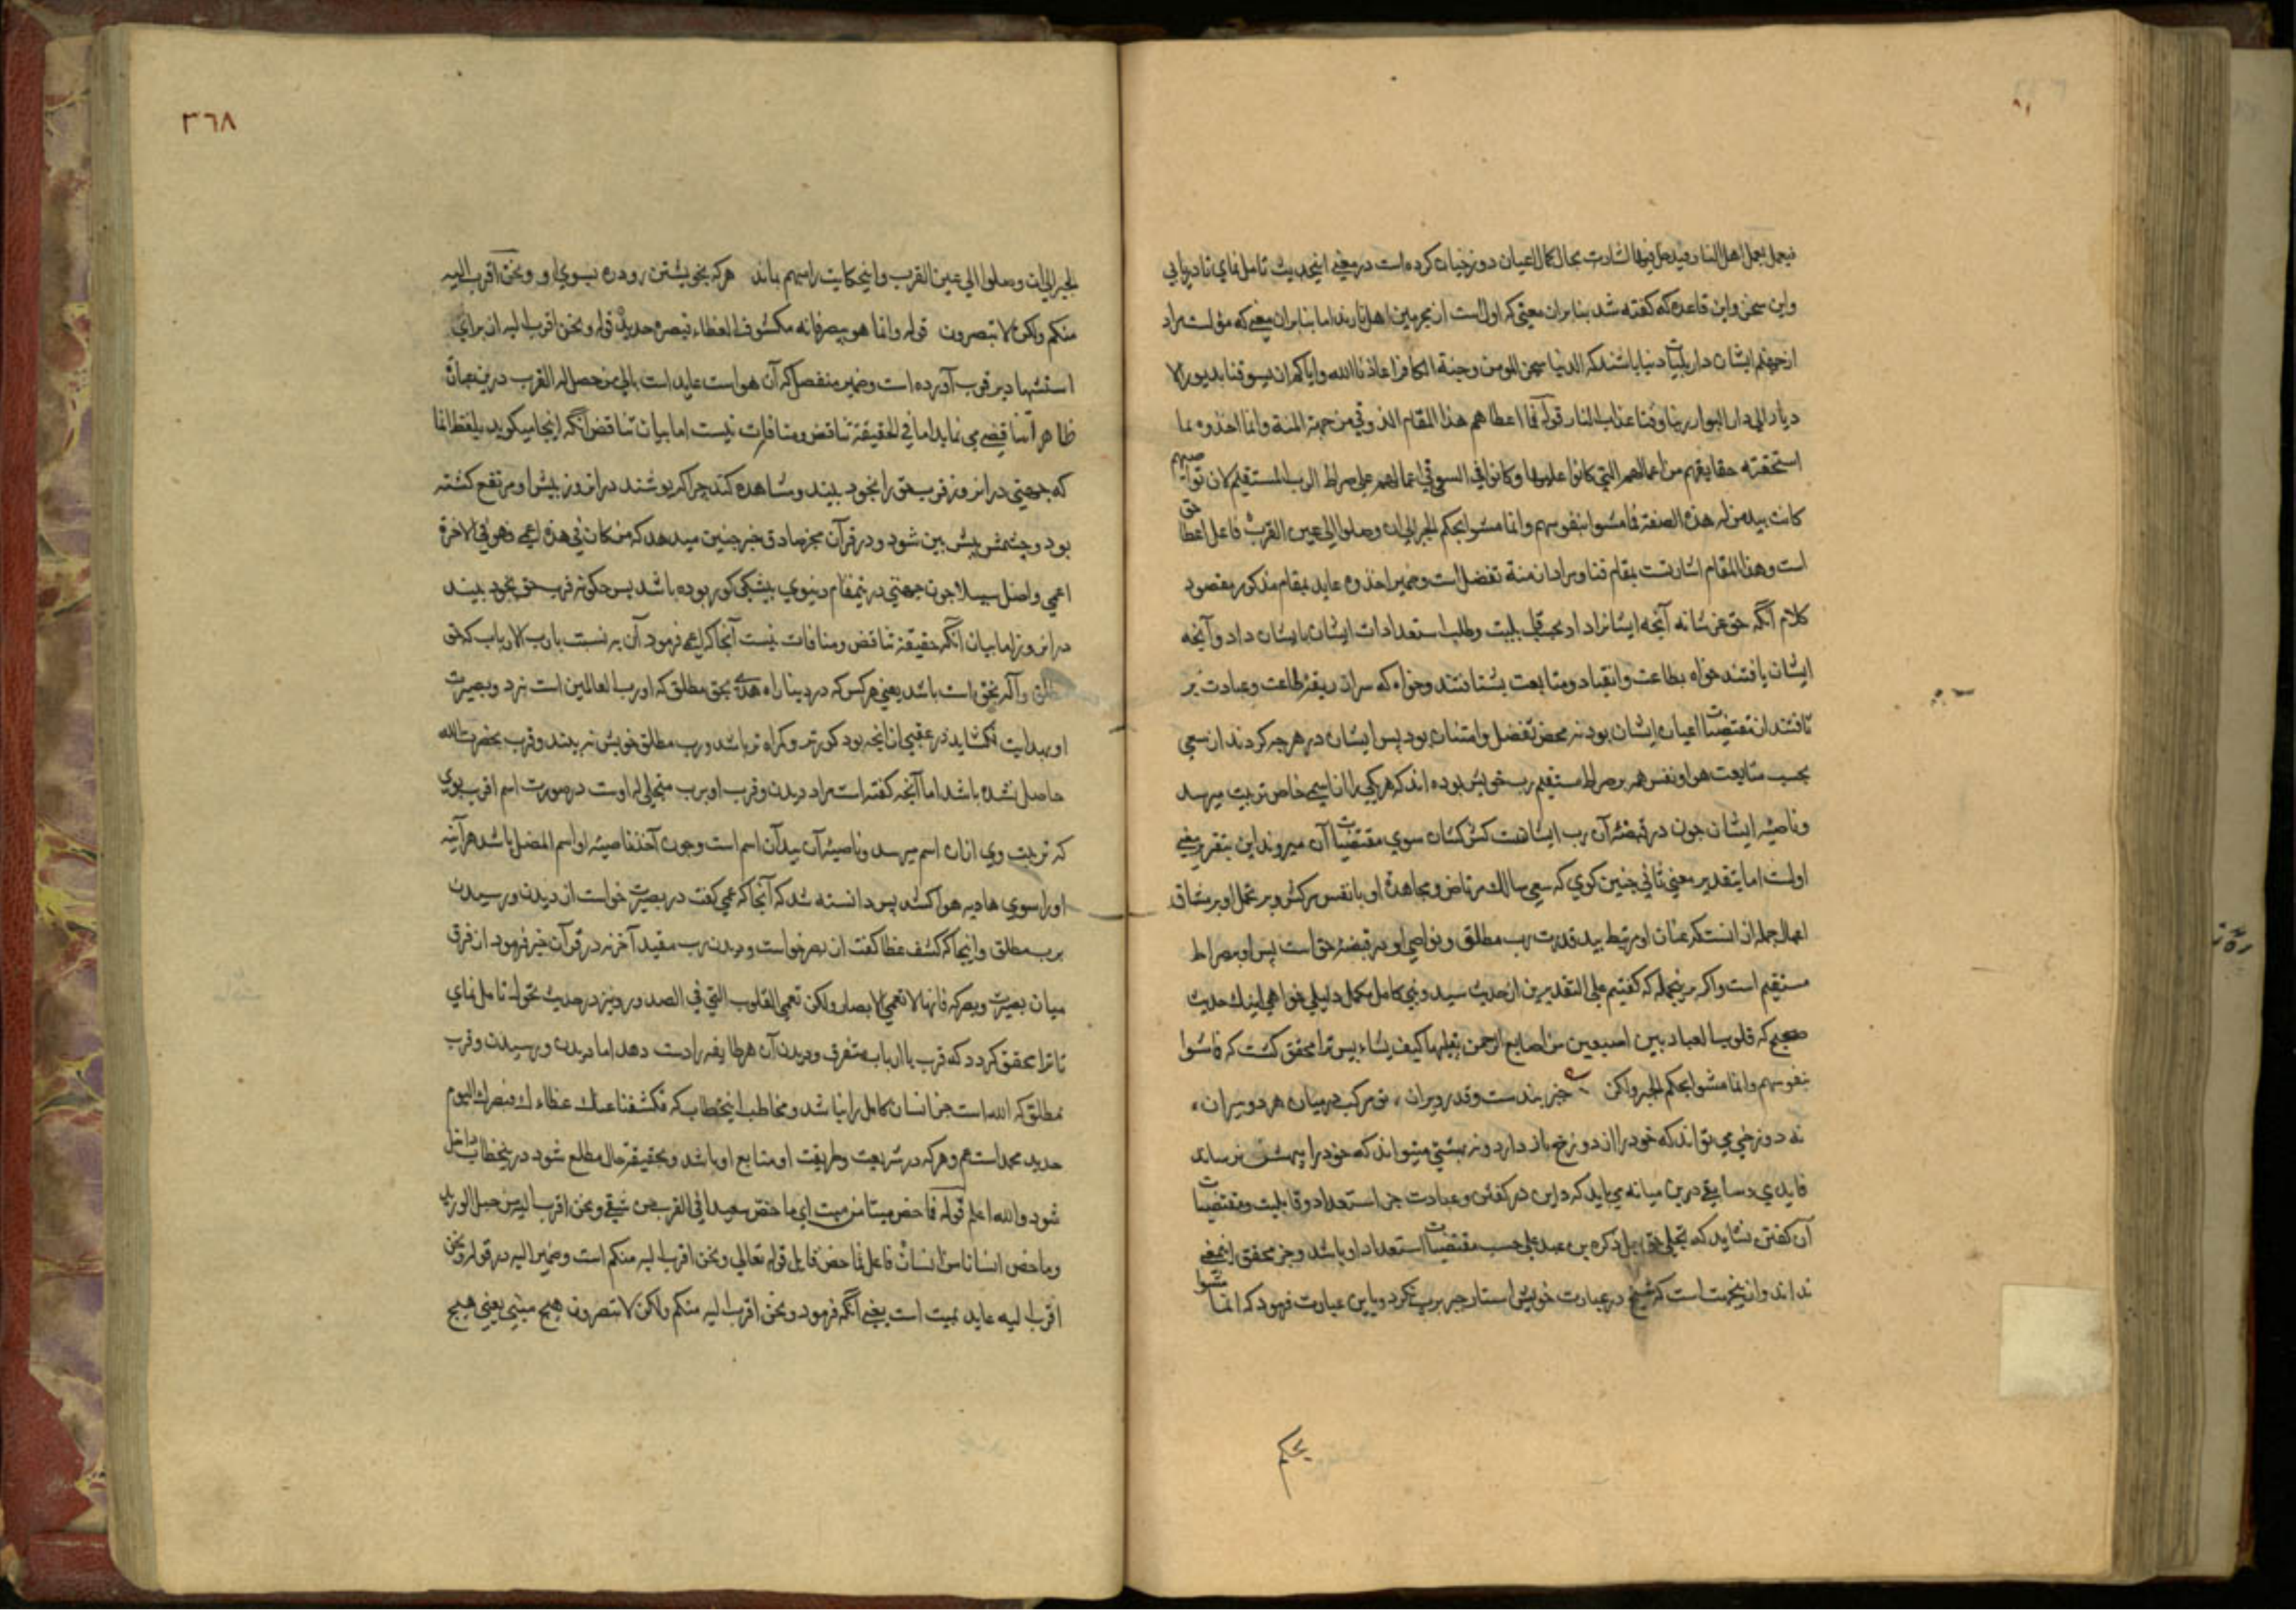 فیعمل بعمل اهل النار فیدخل فیها اشارت بحال کمال اعیان دوزخیان کرده است در معنی اینحدیث تامل نمای تا دریابی
واین سخن واین قاعده که کفته شد بنابران معنی که اول است از مجرمین اهل نارند اما بنابران معنی که مؤل است مراد
از جهنم ایشان دار بلیّات دنیا باشند که الدنیا سجن المومن وجنة الکافر اعاذنا الله وایاکم ان یسوقنا بدبور الا
دبار الی دار البوار ربنا وقنا عذاب النار قوله فما اعطاهم هذا المقام الذوقی من جهة المنة وانما اخذوه بما
استحقته حقایقهم من اعمالهم التی کانوا علیها وکانوا فی السعی فی اعمالهم علی صراط الرب المستقیم لان نواصیهم
کانت بید من له هذه الصفة فما مشوا بنفوسهم وانما مشوا بحکم الجبر الی ان وصلوا الی عین القرب فاعل اعطا حق
است وهذا المقام اشارتست بمقام فنا ومراد از منة تفضل است وضمیر اخذوه عاید بمقام مذکور مقصود
کلام آنکه حق عز شانه آنچه ایشانرا داد بحسب قابلیت وطلب استعدادات ایشان بایشان داد وآنچه
ایشان یافتند خواه بطاعت وانقیاد ومتابعت بشتافتند وخواه که سر از ربقۀ طاعت وعبادت بر
تافتند از مقتضیات اعیان ایشان بود نه محض تفضل وامتنان بود پس ایشان در هرچه کردند از سعی
بحسب متابعت هوا ونفس هم بر صراط مستقیم رب خویش بوده اند که هر یکی را از اسمی خاص تربیت میرسد
وناصیۀ ایشان جون در قبضۀ آن رب ایشانست کش کشان سوی مقتضیات آن میروند این بتقریر معنی
اولست اما بتقدیر معنی ثانی جنین کوی که سعی سالک مرتاض ومجاهدۀ او با نفس سرکش وبر تحمل او بر مشاق
اعمال جمله از انست که عنان او مرتبط بید قدرت رب مطلق ونواصی او در قبضۀ حق است پس او بصراط
مستقیم است واکر برینجمله که کفتیم علی التقدیرین از حدیث سید ونبی کامل مکمل دلیلی خواهی اینک حدیث
صحیح که قلوب العباد بین اصبعین من اصابع الرحمن یقلبها کیف یشاء پس ترا محقق کشت که فما مشوا
بنفوسهم وانما مشوا بحکم الجبر ولکن جبر بندست وقدر ویران ، تو مرکب در میان هر دو بیران ،
نه دوزخی می تواند که خود را از دوزخ باز دارد ونه بهشتی میتواند که خود را ببهشت رساند
قایدی وسایقی درین میانه می باید که داین در کفتن وعبادت جز استعداد وقابلیت ومقتضیات
آن کفتن نشاید که تجلی حق جل ذکره بر عبد علی حسب مقتضیات استعداد او باشد وجز محقق اینمعنی
نداند وازینجهت است که شیخ در عبارت خویش استار جبر برب نکرد وباین عبارت فرمود که انما مشوا
بحکم
٣٦٨
الجبر الی ان وصلوا الی عین القرب واینحکایت راسهم باند هر که بخویشتن رود ره بسوی او ونحن اقرب الیه
منکم ولکن لا تبصرون قوله وانما هو یبصر فانه مکشوف الغطاء فبصره حدید قوله ونحن اقرب الیه از برای
استشهاد بر قرب آورده است وضمیر منفصل که آن هو است عاید است بالی من حصل له القرب درین بیان
ظاهرا تناقضی می نماید اما فی الحقیقة تناقض ومنافات نیست اما بیان تناقض آنکه اینجا میکوید بلفظ انما
که جهنمی در انروز قرب حق را بخود بیند ومشاهده کند چرا که پوشند در انروز پیش او مرتفع کشته
بود وچشمش پیش بین شود ودر قرآن مخبر صادق خبر جنین میدهد که من کان فی هذه اعمی فهو فی الاخرة
اعمی واضل سبیلا جون جهنمی درینمقام دنیوی بیشکی کور بوده باشد پس چکونه قرب حق بخود بیند
در انروز اما بیان آنکه حقیقة تناقض ومنافات نیست آنجا که اعمی فرمود آن بر نسبت بارب الارباب که حق
مطلق وآکه بحق است باشد یعنی هر کس که در دینا راه هدی بحق مطلق که او رب العالمین است نبرد وبصیرت
او بهدایت نکشاید در عقبی از انچه بود کورتر وکمراه تر باشد ورب مطلق خویش نه بیند وقرب بحضرت الله
حاصل نشده باشد اما آنچه کفته است مراد دیدن وقرب او برب متجلی له اوست در صورت اسم اقرب بوی
که تربیت وی ازان اسم میرسد وناصیۀ آن بید آن اسم است وجون آخذ ناصیۀ او اسم المضل باشد هر آینه
او را سوی هاویه هوا کشد پس دانسته شد که آنجا که عمی کفت در بصیرت خواست از دیدن ورسیدن
برب مطلق واینجا که کشف غطا کفت از بصر خواست ودیدن رب مقید آخر نه در قرآن خبر فرمود از فرق
میان بصیرت وبصر که فانها لا تعمی الابصار ولکن تعمی القلوب التی فی الصدور ونیز در حدیث تحول تامل نمای
تا ترا محقق کردد که قرب با ارباب متفرق ودیدن آن هر طایفه را دست دهد اما دیدن ورسیدن وقرب
بمطلق که الله است جز انسان کامل را نباشد ومخاطب اینخطاب که فکشفنا عنک غطاءک فبصرک الیوم
حدید محمد است عم وهر که در شریعت وطریقت او متابع او باشد وبحقیقة حال مطلع شود درینخطاب داخل
شود والله اعلم قوله فما خص میتا من میت ای ما خص سعیدا فی القرب من شقی ونحن اقرب الیه من حبل الورید
وما خص انسانا من انسان فاعل فما خص قایل قوله تعالی ونحن اقرب الیه منکم است وضمیر الیه در قوله ونحن
اقرب الیه عاید بمیت است یعنی آنکه فرمود ونحن اقرب الیه منکم ولکن لا تبصرون هیچ میتی یعنی هیچ